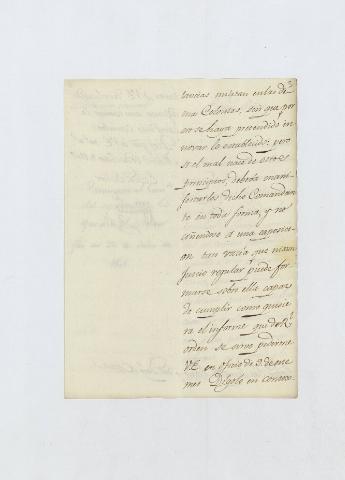 tancias militan en las de
mas Colonias, sin que por
eso se haya pretendido in
novar lo establecido: pero
si el mal nace de otros
principios, debería mani
festarlos dicho Comandan
te en toda forma, y no
ciñendose a una exposici
on tan vacía que ningun
Juicio regular puede for
marse sobre ella capaz
de cumplir como quisie
ra el informe que de Rl.
orden se sirve pedirme
V.E. en oficio de 3. de este
mes Digolo en contex